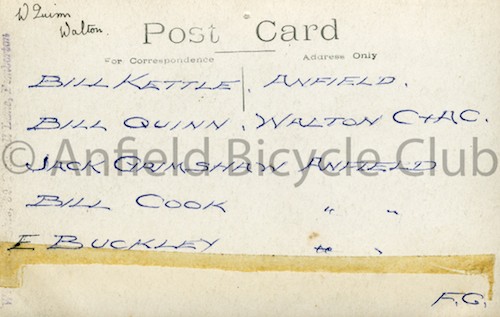 W Quinn
Walton.
Post Card
For Correspondence Address Only
BILL KETTLE. ANFIELD.
BILL QUINN. WALTON C+AC.
© Anfield Bicycle Club
JACK GRIMSHAW ANFIELD
BILL COOK " "
E BUCKLEY " "
F.G.